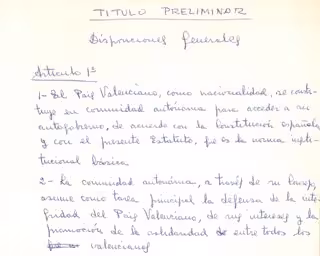 TITULO PRELIMINAR
Disposiciones Generales
Articulo 1º
1- El Paiz Valenciano, como nacionalidad, se consti-
tuye en comunidad autónoma para acceder a su
autogobierno, de acuerdo con la Constitución española
y con el presente Estatuto, que es la norma insti-
tucional básica
2- La comunidad autónoma, a través de su Consejo,
asume como tarea principal la defensa de la inte-
gridad del Paiz Valenciano, de sus intereses y la
promoción de la solidaridad de entre todos los
valencianos